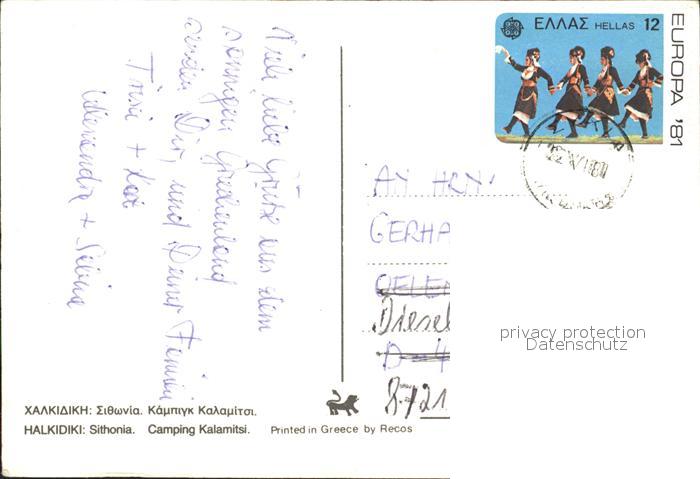 Viele liebe Grüße aus dem
sonnigen Griechenland
senden Dir und Deiner Familie
Trixi + Kai
Alexandra + Sabine
ΕΛΛΑΣ HELLAS 12
EUROPA '81
AN HRN.
GERHA
Diesel
D-4
8421
privacy protection
Datenschutz
ΧΑΛΚΙΔΙΚΗ: Σιθωνία. Κάμπιγκ Καλαμίτσι.
HALKIDIKI: Sithonia. Camping Kalamitsi.
Printed in Greece by Recos